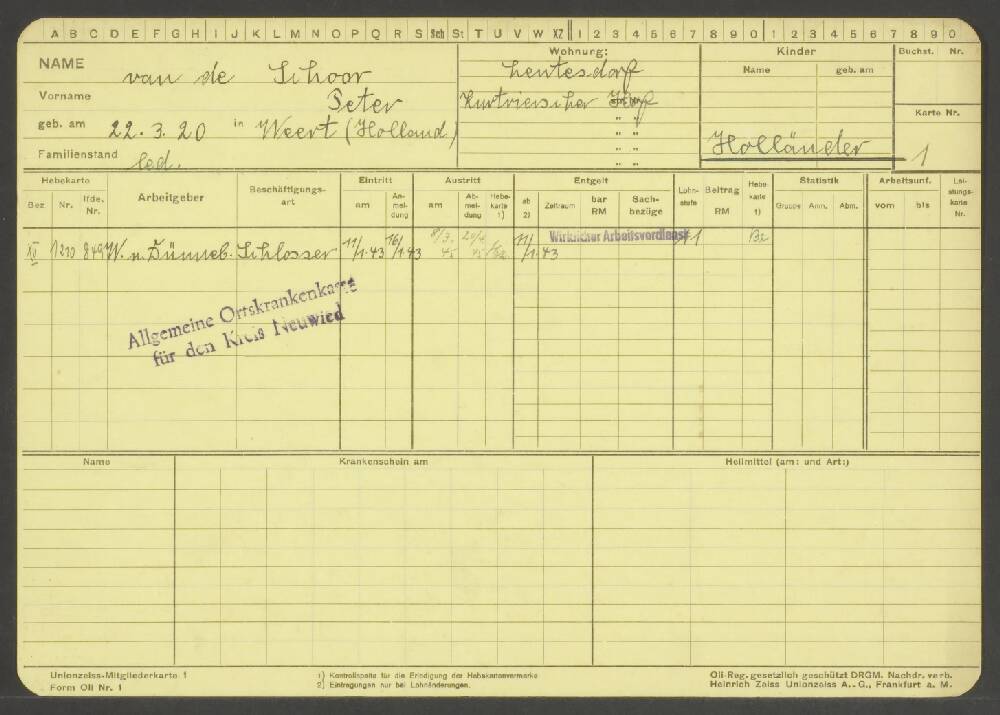 A B C D E F G H I J K L M N O P Q R S Sch St T U V W XZ 1 2 3 4 5 6 7 8 9 0 1 2 3 4 5 6 7 8 9 0
NAME van de Schoor
Vorname Peter
geb. am 22.3.20 in Weert (Holland)
Familienstand led.
Wohnung:
Leutesdorf
Kurtrierscher Hof
" "
" "
" "
Kinder
Name geb. am
Holländer
Buchst. Nr.
Karte Nr.
1
Hebekarte Arbeitgeber Beschäftigungsart Eintritt Austritt Entgelt Lohnstufe Beitrag RM Hebekarte 1) Statistik Arbeitsunf. Leistungskarte Nr.
Bez Nr. lfde. Nr. am Anmeldung am Abmeldung Hebekarte 1) ab 2) Zeitraum bar RM Sachbezüge Gruppe Ann. Abm. vom bis
XV 1210 849 W. u. Dünneb. Schlosser 11/1.43 16/1.43 8/3. 45 20/4 45 11/1.43 Wirklicher Arbeitsverdienst 1
Allgemeine Ortskrankenkasse
für den Kreis Neuwied
Name Krankenschein am Heilmittel (am: und Art:)
Unionzeiss-Mitgliederkarte 1
Form Oli Nr. 1
1) Kontrollspalte für die Erledigung der Hebekartenvermerke
2) Eintragungen nur bei Lohnänderungen.
Oli-Reg. gesetzlich geschützt DRGM. Nachdr. verb.
Heinrich Zeiss Unionzeiss A.. G., Frankfurt a. M.